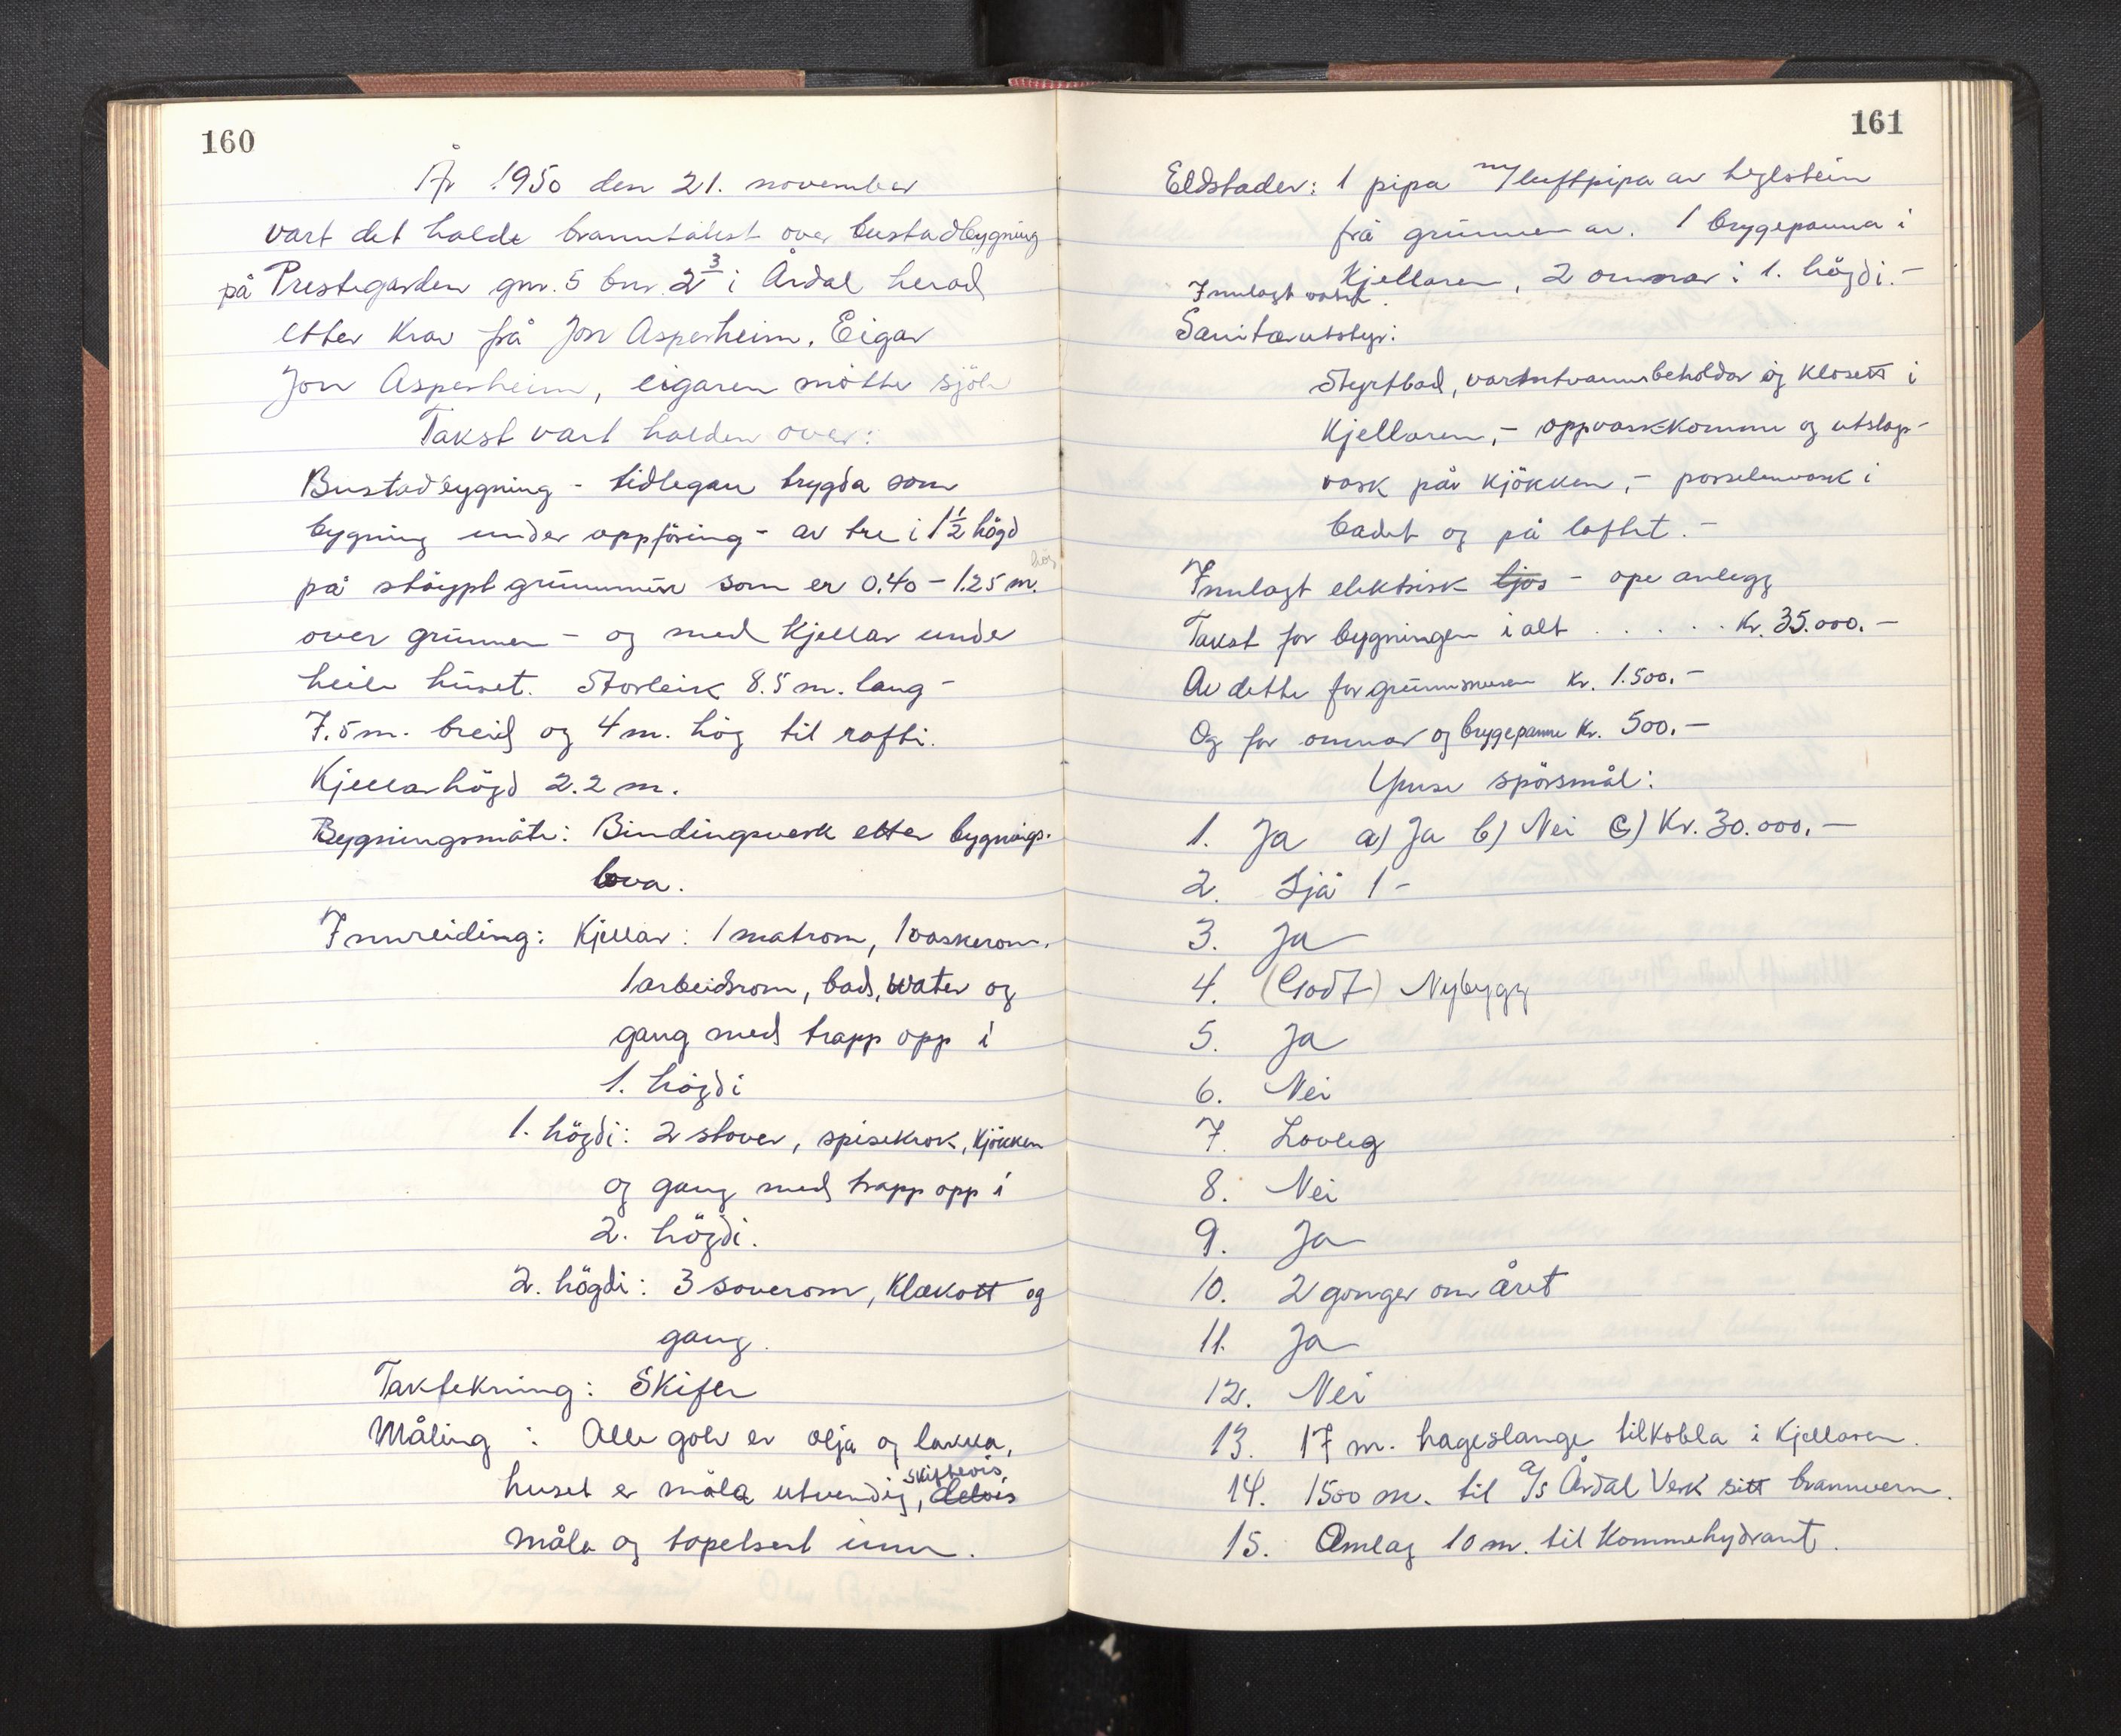 160
År 1950 den 21. november
vart det halde branntakst over bustadbygning
på Prestegarden gnr. 5 bnr. 2 3 i Årdal herad
etter krav frå Jon Asperheim. Eigar
Jon Asperheim, eigaren møtte sjølv
Takst vart halden over:
Bustadbygning - tidlegare trygda som
bygning under oppföring - av tre i 1 1/2 högd
på stöypt grunnmur som er 0.40 - 1.25 m. hög
over grunnen - og med kjellar under
heile huset. Storleik 8.5 m. lang -
7.5 m. breid og 4 m. hög til rafti.
Kjellarhögd 2.2 m.
Bygningsmåte: Bindingsverk etter bygnings-
lova.
Innreiding: Kjellar: 1 matrom, 1 vaskerom,
1 arbeidsrom, bad, water og
gang med trapp opp i
1. högdi
1. högdi: 2 stover, spisekrok, kjökken
og gang med trapp opp i
2. högdi.
2. högdi: 3 soverom, klekott og
gang.
Taktekning: Skifer
Måling : Alle golv er olja og lakka,
huset er måla utvendig, delvis skiftevis
måla og tapetsert inne.
161
Eldstader: 1 pipa m/luftpipa av teglstein
frå grunnen av. 1 brygepanna i
Kjellaren, 2 omnar i 1. högdi. -
Innlagt vatn.
Sanitærutstyr:
Styrtbad, varmtvannsbeholdar og klosett i
Kjellaren, - oppvaskkomme og utslag-
vask på kjökken, - porselenvask i
badet og på loftet. -
Innlagt elektrisk ljos - ope anlegg
Takst for bygningen i alt . . . . . kr. 35.000. -
Av dette for grunnmuren kr. 1.500. -
Og for omnar og brygepanne kr. 500. -
Ymse spörsmål:
1. Ja a) Ja b) Nei c) Kr. 30.000. -
2. Sjå 1 -
3. Ja
4. (Godt) Nybygg
5. Ja
6. Nei
7. Lovleg
8. Nei
9. Ja
10. 2 gonger om året
11. Ja
12. Nei
13. 17 m. hageslange tilkobla i kjellaren.
14. 1500 m. til a/s Årdal Verk sitt brannvern.
15. Omlag 10 m. til Kommehydrant.